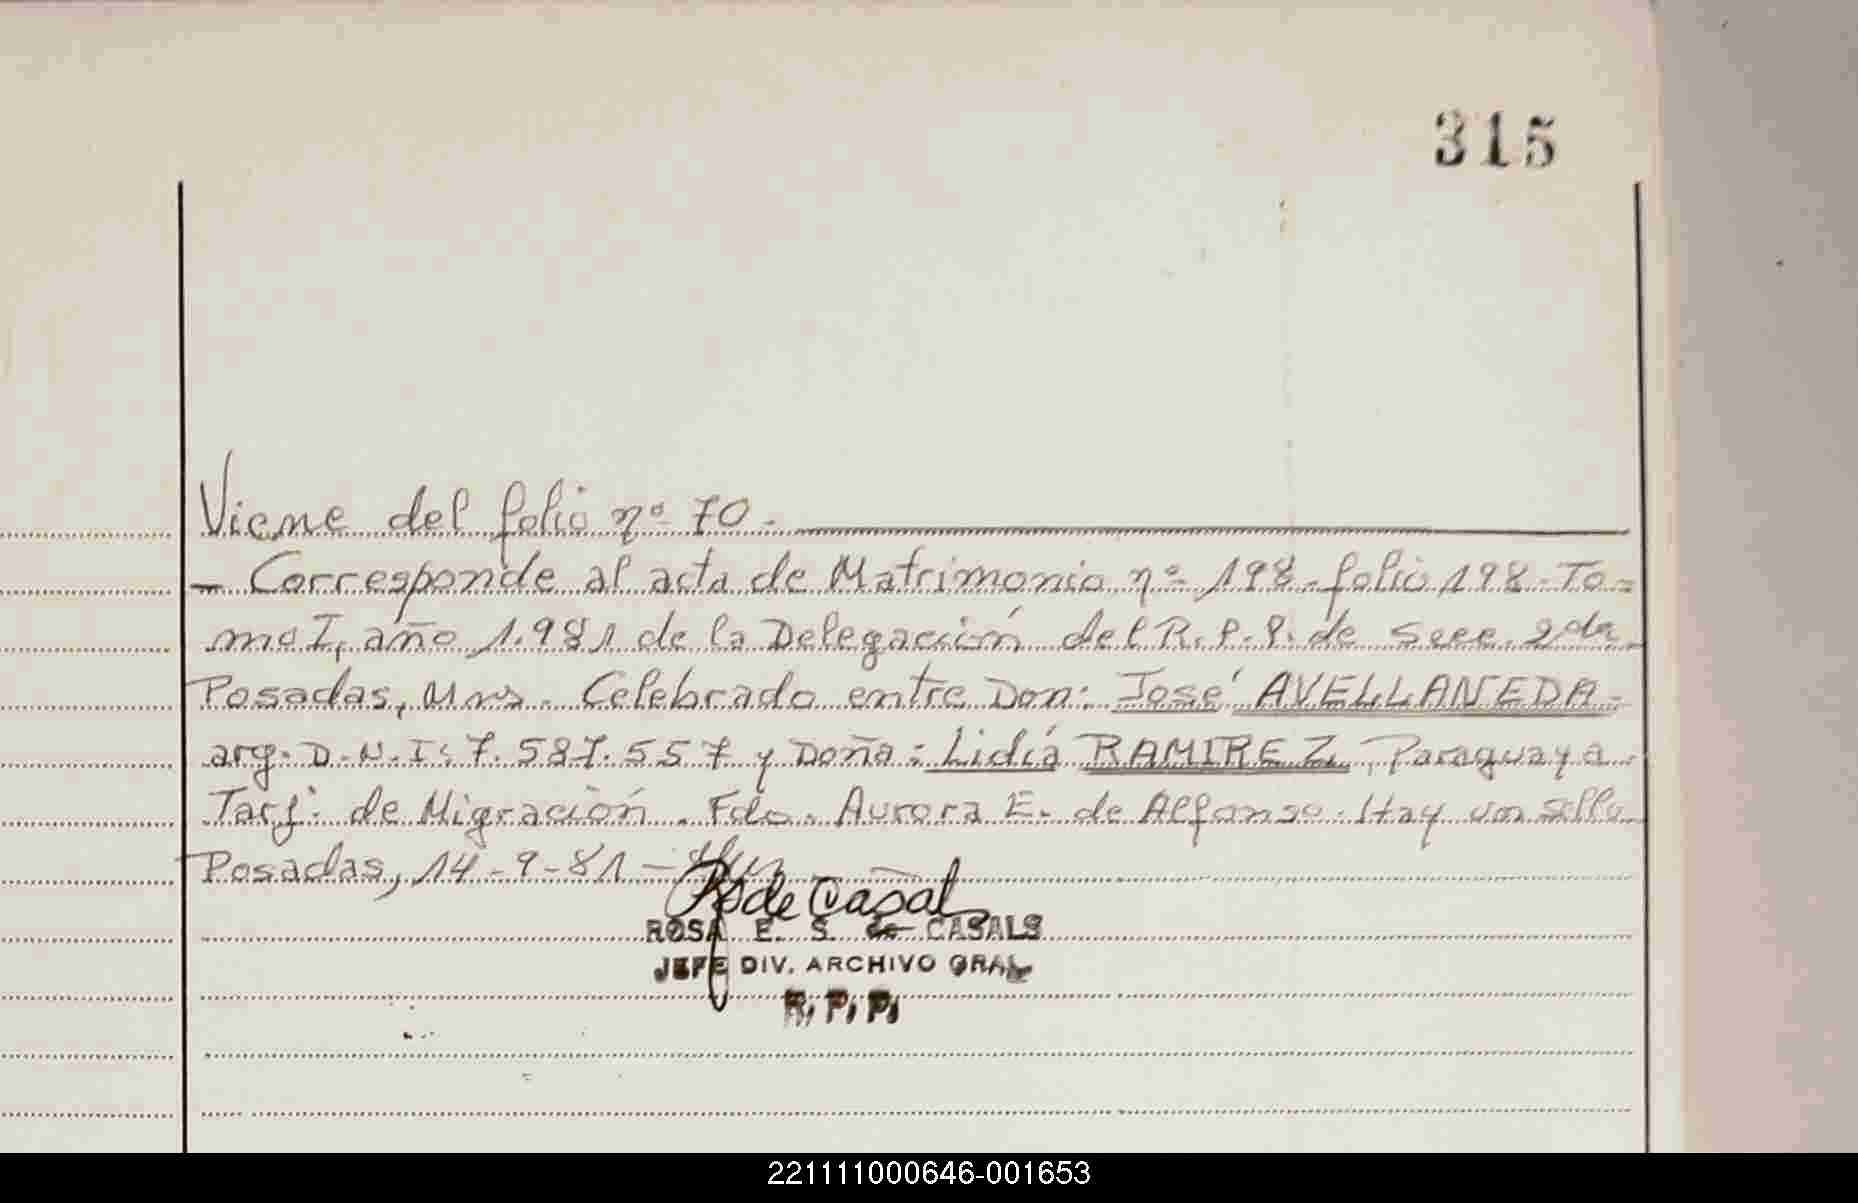 315
Viene del folio nº 70.
- Corresponde al acta de Matrimonio nº 198 - folio 198 - To=
mo I, año 1.981 de la Delegación del R.P.P. de Secc. 2da
Posadas, Mnes. Celebrado entre Don: José AVELLANEDA -
arg. D.N.I: 7.587.557 y Doña: Lidia RAMIREZ, Paraguaya
Tarj. de Migración. Fdo. Aurora E. de Alfonso. Hay un sello
Posadas, 14-9-81 -
R de Casal
ROSA E. S. de CASALS
JEFE DIV. ARCHIVO GRAL
R. P. P.
221111000646-001653